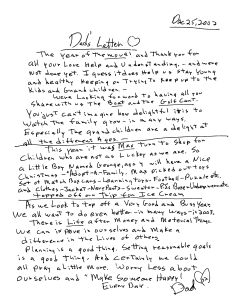 Dec 25, 2002
Dad's Letter ♡
The year of the scout! and Thank you for
all your Love Help and Understanding - and were
Not done yet. I guess it does Help us stay young
and healthy keeping or Trying to keep up to the
Kids and Grand children. -
We're Looking forward to having all you
Share with us the Boat and the Golf Cart.
You just can't imagine how delightful it is to
Watch the family grow - in many ways.
Especially The grand children are a delight at
all the different Ages -
This year it was Mae Turn to Shop for
Children who are not as Lucky as we are. So
a Little Boy Named George, age 4 will have a Nice
Christmas - "Adopt-a-Family. Mae picked out toys
Set of Match Box cars - Learning toys - Football - Puzzle etc.
and Clothes - Jacket - New Pants - Sweater - PJs
topped off on Trip for Ice Cream
As we Look to top off a Very Good and Busy year
We all want to do even better - in many ways - in 2003.
There is Life after Money and Material Things
We can improve ourselves and Make a
difference in the Lives of others
Planning is a good thing. Setting reasonable goals
is a good Thing. And certainly we could
all pray a little More. Worry Less about
ourselves and "Make Someone Happy"
Every Day. Dad